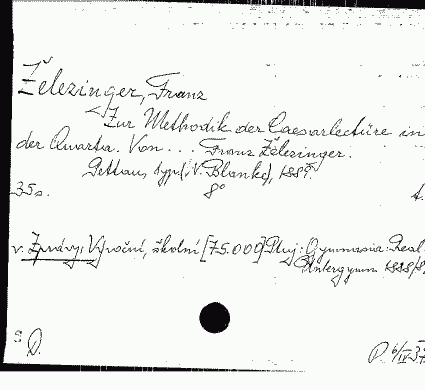 Železinger, Franz
Zur Methodik der Caesarlectüre in
der Quarta. Von ... Franz Železinger.
Pettau, typ. (W. Blanke),
35 s. 8°
v. Zprávy, Výroční, školní [75.000] Ptuj: Gymnasia: Real
Untergymn. 1888/8
S P.
P.